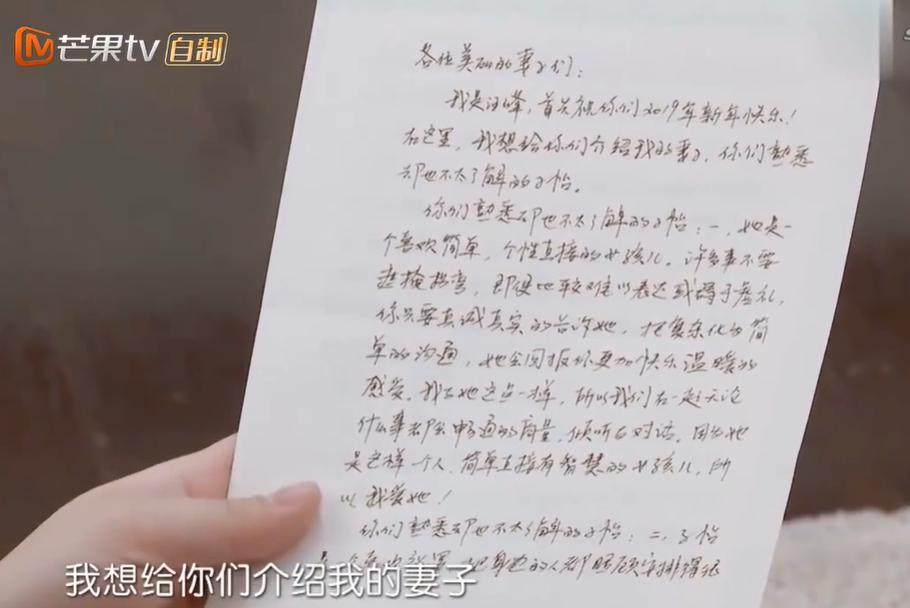 芒果tv 自制
各位美丽的妻子们：
我是汪峰，首先祝你们2019年新年快乐！
在这里，我想给你们介绍我的妻子，你们熟悉
却也不太了解的子怡。
你们熟悉却也不太了解的子怡：一，她是一
个喜欢简单，个性直接的女孩儿。许多事不要
遮掩拐弯，即使比较难以表达或碍于虚礼，
你只要真诚真实的告诉她，把复杂化为简
单的沟通，她会回报你更加快乐温暖的
感受。我与她这点一样，所以我们在一起无论
什么事都会畅通的商量，倾听与对话。因为她
是这样一个人，简单直接有智慧的女孩儿，所
以我爱她！
你们熟悉却也不太了解的子怡：二，子怡
身边的人都照顾安排得很
我想给你们介绍我的妻子